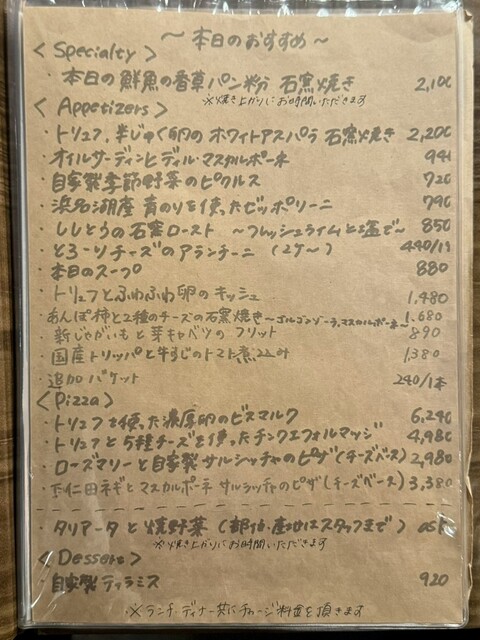 ～本日のおすすめ～
＜Specialty＞
・本日の鮮魚の香草パン粉 石窯焼き 2,100
※焼き上がりにお時間いただきます
＜Appetizers＞
・トリュフ、半じゅく卵の ホワイトアスパラ 石窯焼き 2,200
・オイルサーディンとディル・マスカルポーネ 941
・自家製季節野菜のピクルス 720
・浜名湖産 青のりを使ったゼッポリーニ 790
・ししとうの石窯ロースト ～フレッシュライムと塩で～ 850
・とろ～りチーズのアランチーニ（2ケ～） 440/1ケ
・本日のスープ 880
・トリュフとふわふわ卵のキッシュ 1,480
・あんぽ柿と2種のチーズの石窯焼き～ゴルゴンゾーラ,マスカルポーネ～ 1,680
・新じゃがいもと芽キャベツのフリット 890
・国産トリッパと牛すじのトマト煮込み 1,380
・追加バケット 240/1本
＜Pizza＞
・トリュフを使った濃厚卵のビスマルク 6,240
・トリュフと5種チーズを使ったチンクエフォルマッジ 4,980
・ローズマリーと自家製サルシッチャのピザ(チーズベース) 2,980
・下仁田ネギとマスカルポーネ サルシッチャのピザ(チーズベース) 3,380
・タリアータと焼野菜（部位・産地はスタッフまで） ask
※焼き上がりにお時間いただきます
＜Dessert＞
・自家製ティラミス 920
※ランチ・ディナー共にチャージ料金を頂きます